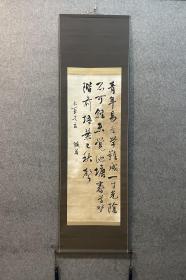 青年易老学難成一寸光陰
不可軽未覺池塘春草夢
階前梧葉已秋聲